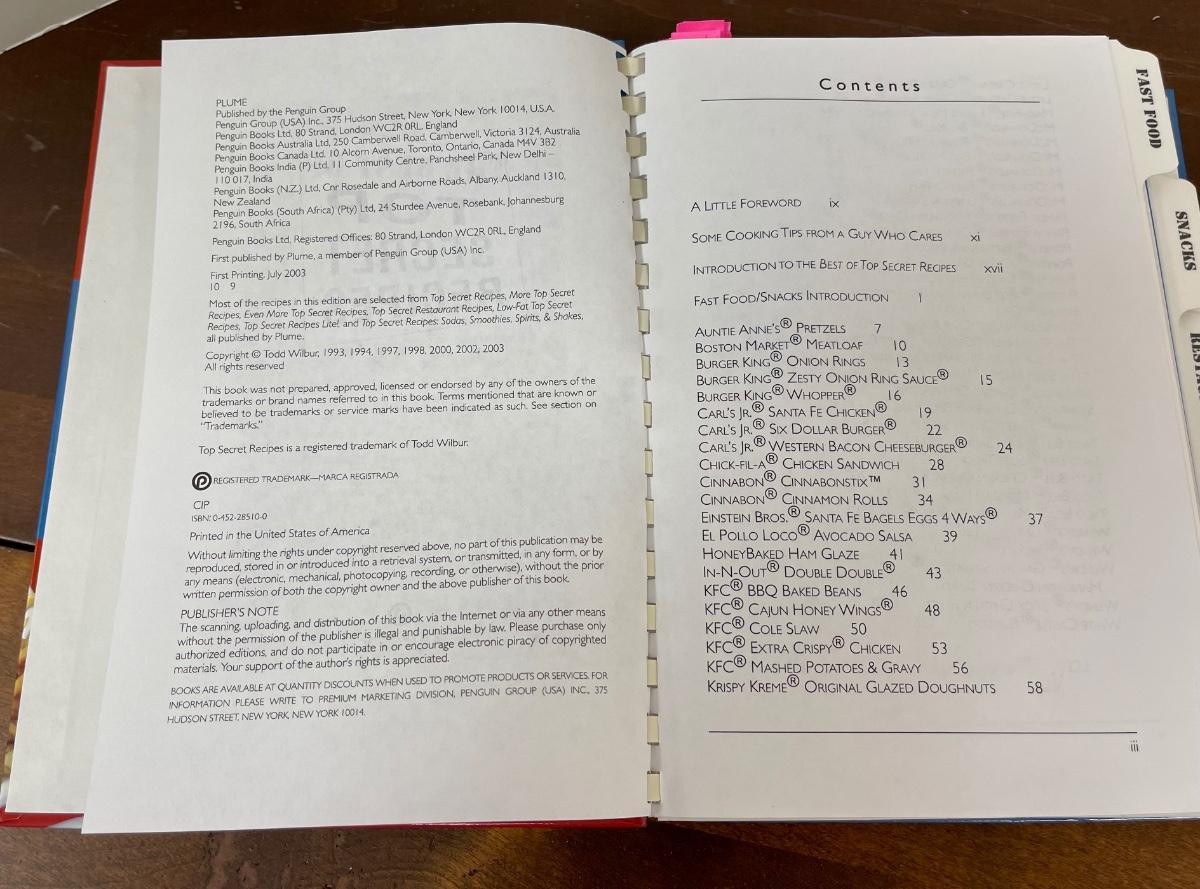 PLUME
Published by the Penguin Group
Penguin Group (USA) Inc., 375 Hudson Street, New York, New York 10014, U.S.A.
Penguin Books Ltd, 80 Strand, London WC2R 0RL, England
Penguin Books Australia Ltd, 250 Camberwell Road, Camberwell, Victoria 3124, Australia
Penguin Books Canada Ltd, 10 Alcorn Avenue, Toronto, Ontario, Canada M4V 3B2
Penguin Books India (P) Ltd, 11 Community Centre, Panchsheel Park, New Delhi –
110 017, India
Penguin Books (N.Z.) Ltd, Cnr Rosedale and Airborne Roads, Albany, Auckland 1310,
New Zealand
Penguin Books (South Africa) (Pty) Ltd, 24 Sturdee Avenue, Rosebank, Johannesburg
2196, South Africa
Penguin Books Ltd, Registered Offices: 80 Strand, London WC2R 0RL, England
First published by Plume, a member of Penguin Group (USA) Inc.
First Printing, July 2003
10 9
Most of the recipes in this edition are selected from Top Secret Recipes, More Top Secret
Recipes, Even More Top Secret Recipes, Top Secret Restaurant Recipes, Low-Fat Top Secret
Recipes, Top Secret Recipes Lite!, and Top Secret Recipes: Sodas, Smoothies, Spirits, & Shakes,
all published by Plume.
Copyright © Todd Wilbur, 1993, 1994, 1997, 1998, 2000, 2002, 2003
All rights reserved
This book was not prepared, approved, licensed or endorsed by any of the owners of the
trademarks or brand names referred to in this book. Terms mentioned that are known or
believed to be trademarks or service marks have been indicated as such. See section on
"Trademarks."
Top Secret Recipes is a registered trademark of Todd Wilbur.
REGISTERED TRADEMARK—MARCA REGISTRADA
CIP
ISBN: 0-452-28510-0
Printed in the United States of America
Without limiting the rights under copyright reserved above, no part of this publication may be
reproduced, stored in or introduced into a retrieval system, or transmitted, in any form, or by
any means (electronic, mechanical, photocopying, recording, or otherwise), without the prior
written permission of both the copyright owner and the above publisher of this book.
PUBLISHER'S NOTE
The scanning, uploading, and distribution of this book via the Internet or via any other means
without the permission of the publisher is illegal and punishable by law. Please purchase only
authorized editions, and do not participate in or encourage electronic piracy of copyrighted
materials. Your support of the author's rights is appreciated.
BOOKS ARE AVAILABLE AT QUANTITY DISCOUNTS WHEN USED TO PROMOTE PRODUCTS OR SERVICES. FOR
INFORMATION PLEASE WRITE TO PREMIUM MARKETING DIVISION, PENGUIN GROUP (USA) INC., 375
HUDSON STREET, NEW YORK, NEW YORK 10014.
Contents
A LITTLE FOREWORD ix
SOME COOKING TIPS FROM A GUY WHO CARES xi
INTRODUCTION TO THE BEST OF TOP SECRET RECIPES xvii
FAST FOOD/SNACKS INTRODUCTION 1
AUNTIE ANNE'S® PRETZELS 7
BOSTON MARKET® MEATLOAF 10
BURGER KING® ONION RINGS 13
BURGER KING® ZESTY ONION RING SAUCE® 15
BURGER KING® WHOPPER® 16
CARL'S JR.® SANTA FE CHICKEN® 19
CARL'S JR.® SIX DOLLAR BURGER® 22
CARL'S JR.® WESTERN BACON CHEESEBURGER® 24
CHICK-FIL-A® CHICKEN SANDWICH 28
CINNABON® CINNABONSTIX™ 31
CINNABON® CINNAMON ROLLS 34
EINSTEIN BROS.® SANTA FE BAGELS EGGS 4 WAYS® 37
EL POLLO LOCO® AVOCADO SALSA 39
HONEYBAKED HAM GLAZE 41
IN-N-OUT® DOUBLE DOUBLE® 43
KFC® BBQ BAKED BEANS 46
KFC® CAJUN HONEY WINGS® 48
KFC® COLE SLAW 50
KFC® EXTRA CRISPY® CHICKEN 53
KFC® MASHED POTATOES & GRAVY 56
KRISPY KREME® ORIGINAL GLAZED DOUGHNUTS 58
iii
FAST FOOD
SNACKS